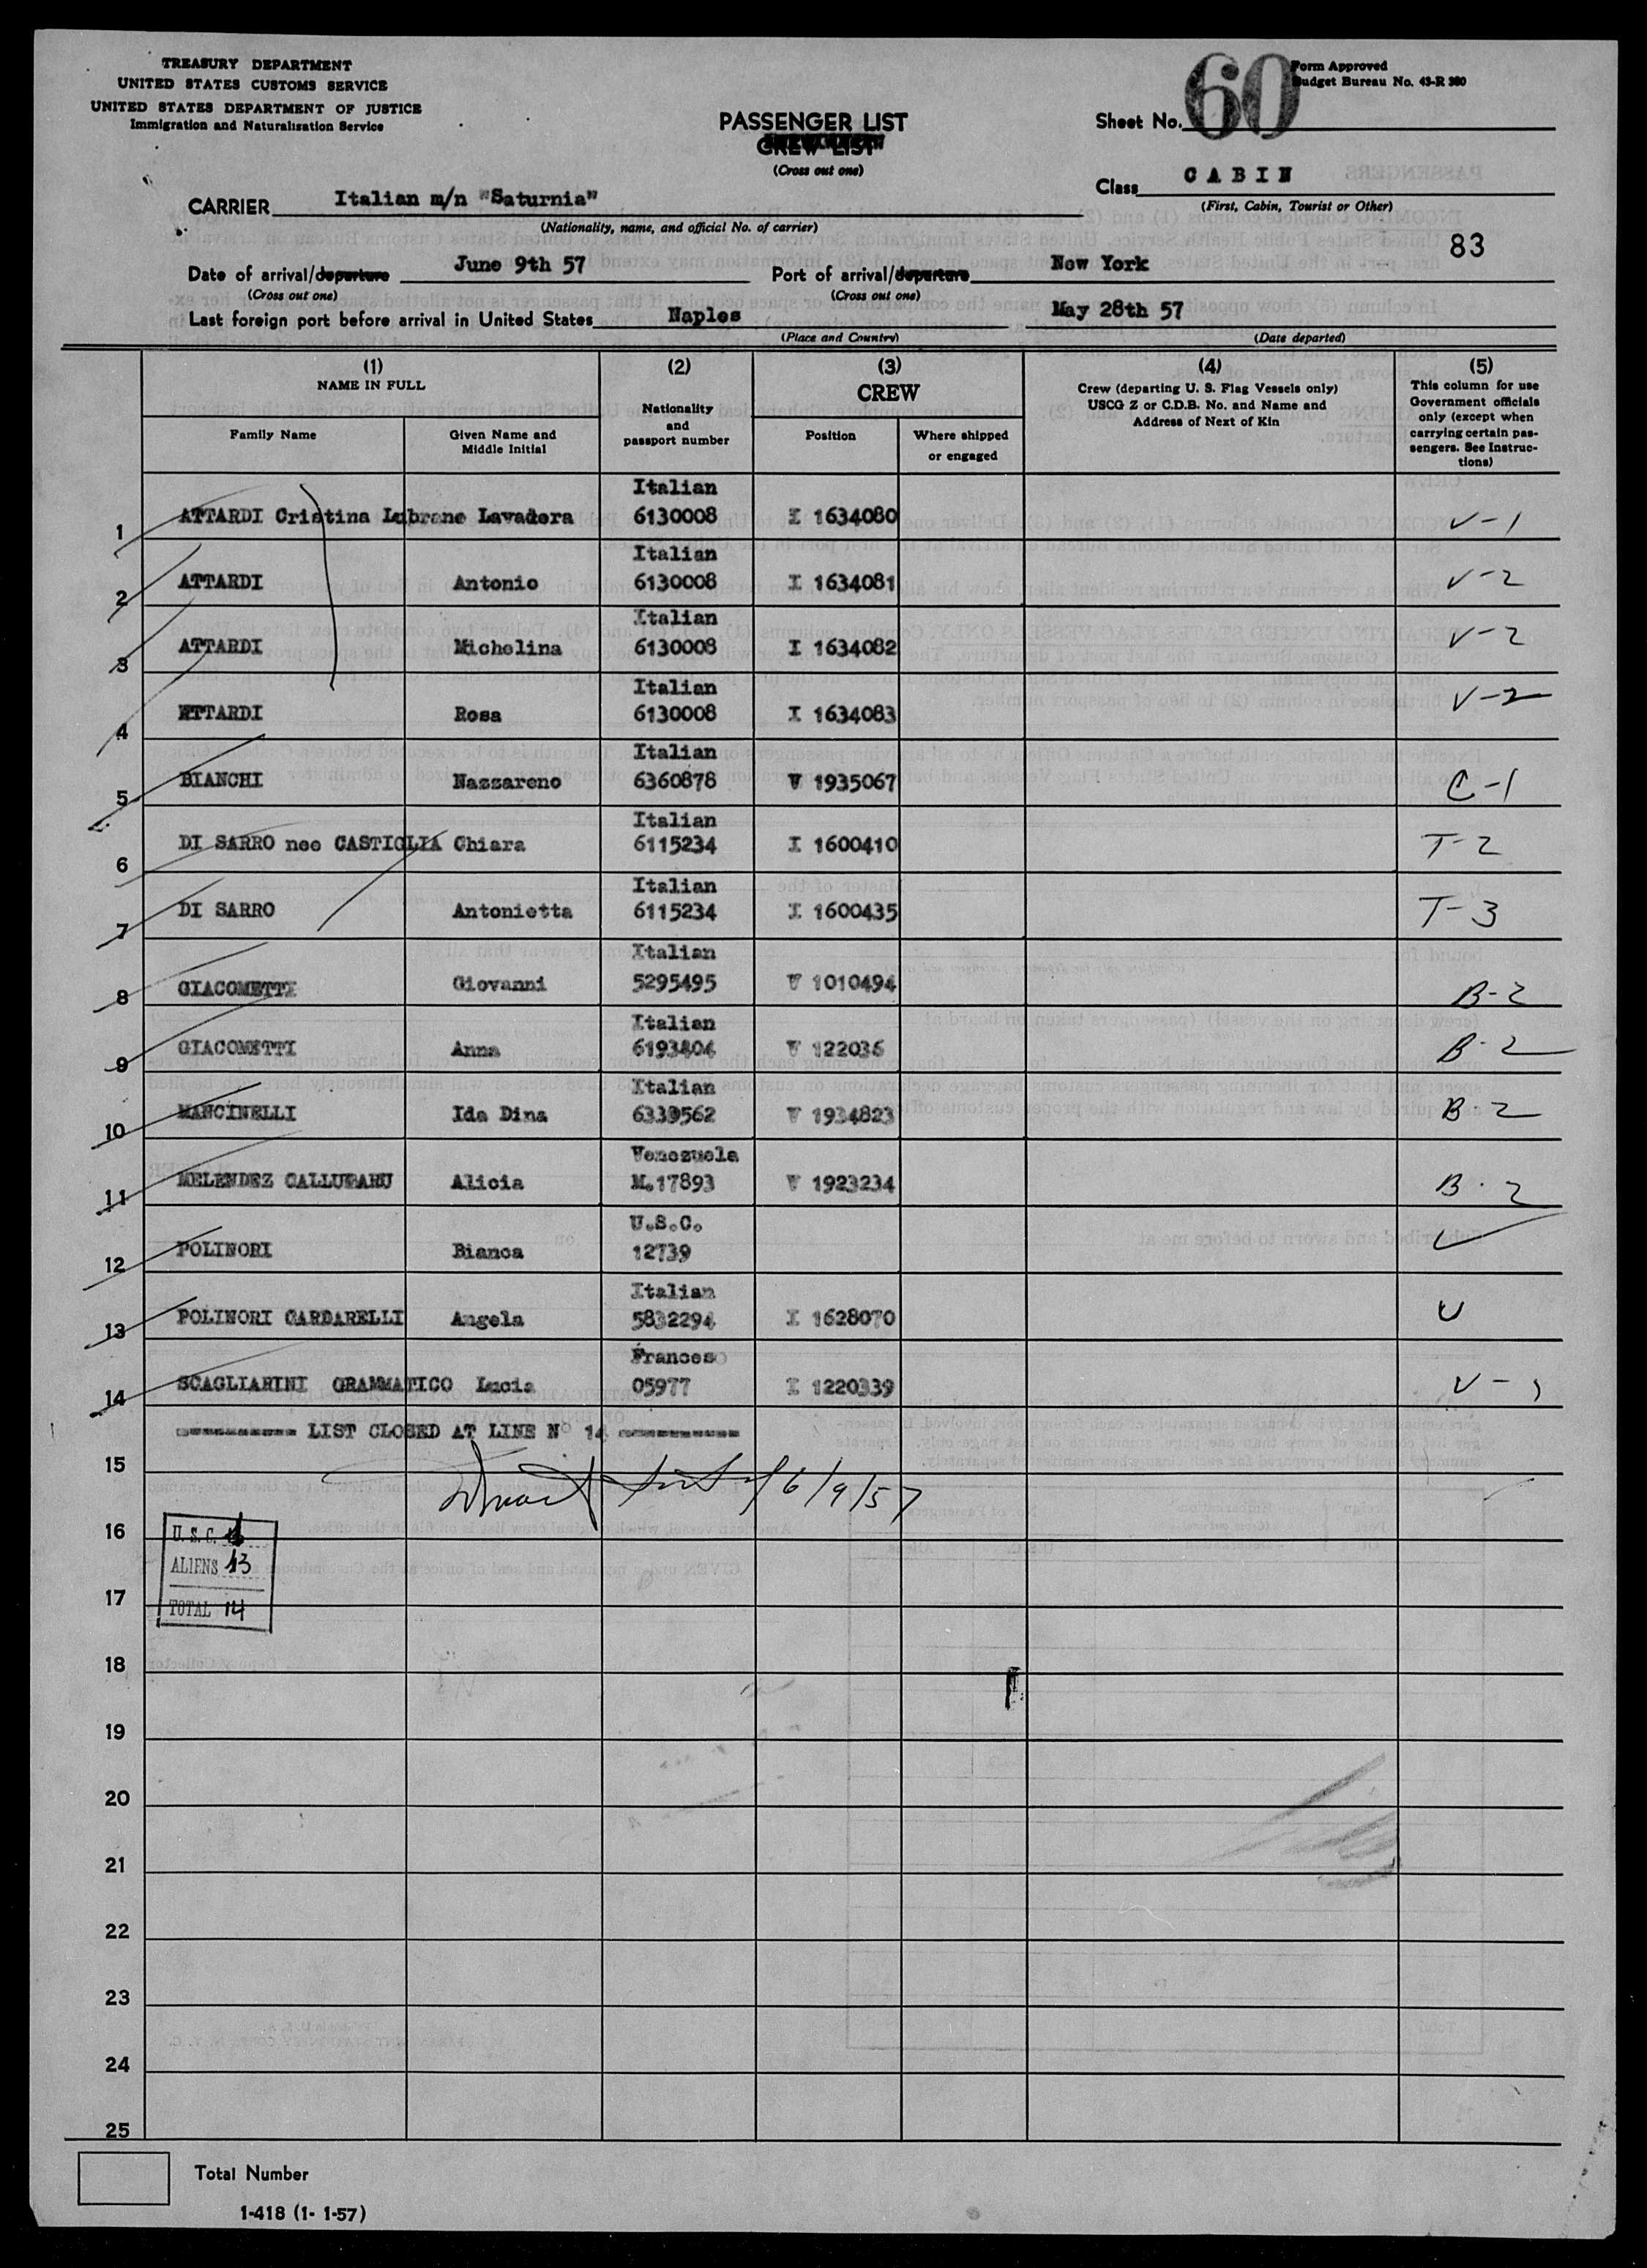 TREASURY DEPARTMENT
UNITED STATES CUSTOMS SERVICE
UNITED STATES DEPARTMENT OF JUSTICE
Immigration and Naturalization Service
PASSENGER LIST
CREW LIST
(Cross out one)
60
Form Approved
Budget Bureau No. 43-R 380
Sheet No.
Class CABIN
(First, Cabin, Tourist or Other)
83
CARRIER Italian m/n "Saturnia"
(Nationality, name, and official No. of carrier)
Date of arrival/departure June 9th 57 Port of arrival/departure New York
(Cross out one) (Cross out one)
Last foreign port before arrival in United States Naples May 28th 57
(Place and Country) (Date departed)
(1) (2) (3) (4) (5)
NAME IN FULL
Family Name
Given Name and
Middle Initial
Nationality
and
passport number
CREW
Position
Where shipped
or engaged
Crew (departing U. S. Flag Vessels only)
USCG Z or C.D.B. No. and Name and
Address of Next of Kin
This column for use
Government officials
only (except when
carrying certain pas-
sengers. See Instruc-
tions)
Italian
1 ATTARDI Cristina Lubrano Lavadera 6130008 I 1634080 V-1
Italian
2 ATTARDI Antonio 6130008 I 1634081 V-2
Italian
3 ATTARDI Michelina 6130008 I 1634082 V-2
Italian
4 ATTARDI Rosa 6130008 I 1634083 V-2
Italian
5 BIANCHI Nazzareno 6360878 V 1935067 C-1
Italian
6 DI SARRO nee CASTIGLIA Chiara 6115234 I 1600410 T-2
Italian
7 DI SARRO Antonietta 6115234 I 1600435 T-3
Italian
8 GIACOMETTI Giovanni 5295495 V 1010494 B-2
Italian
9 GIACOMETTI Anna 6193404 V 122036 B-2
Italian
10 MANCINELLI Ida Dina 6339562 V 1934823 B-2
Venezuela
11 MELENDEZ Alicia M.17893 V 1923234 B-2
U.S.C.
12 POLINORI Bianca 12739
Italian
13 POLINORI CARDARELLI Angela 5832294 I 1628070 U
Frances
14 SCAGLIARINI GRAMMATICO Lucia 05977 I 1220339 V-
LIST CLOSED AT LINE N° 14
15 6/9/57
16
U. S. C. 1
ALIENS 13
TOTAL 14
17
18
19
20
21
22
23
24
25
Total Number
1-418 (1- 1-57)